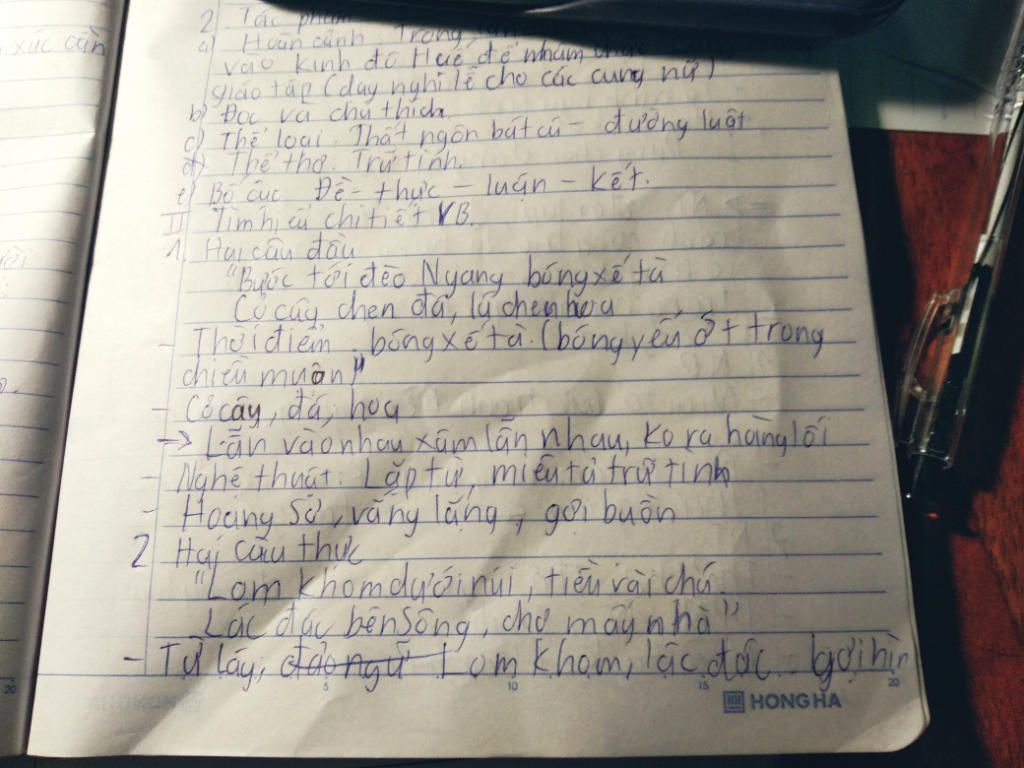 xúc cần
2 Tác phẩm
a) Hoàn cảnh Trong
vào kinh đô Huế để nhậm chức
giáo tập (dạy nghi lễ cho các cung nữ)
b) Đọc và chú thích
c) Thể loại: Thất ngôn bát cú - đường luật
d) Thể thơ: Trữ tình.
e) Bố cục Đề - thực - luận - kết.
II Tìm hiểu chi tiết VB.
1. Hai câu đầu
"Bước tới đèo Ngang bóng xế tà
Cỏ cây chen đá, lá chen hoa
- Thời điểm: bóng xế tà (bóng yếu ớt trong
chiều muộn)"
- Cỏ cây, đá, hoa
-> Lẫn vào nhau xâm lấn nhau, ko ra hàng lối
- Nghệ thuật: Lặp từ, miêu tả trữ tình
- Hoang sơ, vắng lặng, gợi buồn
2 Hai câu thực
"Lom khom dưới núi, tiều vài chú
Lác đác bên sông, chợ mấy nhà"
- Từ láy, đảo ngữ Lom khom, lác đác gợi hìn
5 10 15 20
20
HONG HA